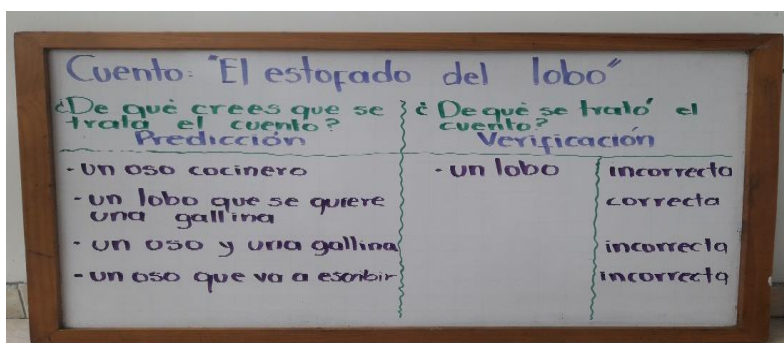 Cuento: "El estofado del lobo"
¿De qué crees que se
trata el cuento?
Predicción
¿De qué se trató el
cuento?
Verificación
- un oso cocinero
- un lobo incorrecta
- un lobo que se quiere
una gallina
correcta
- un oso y una gallina
incorrecta
- un oso que va a escribir
incorrecta